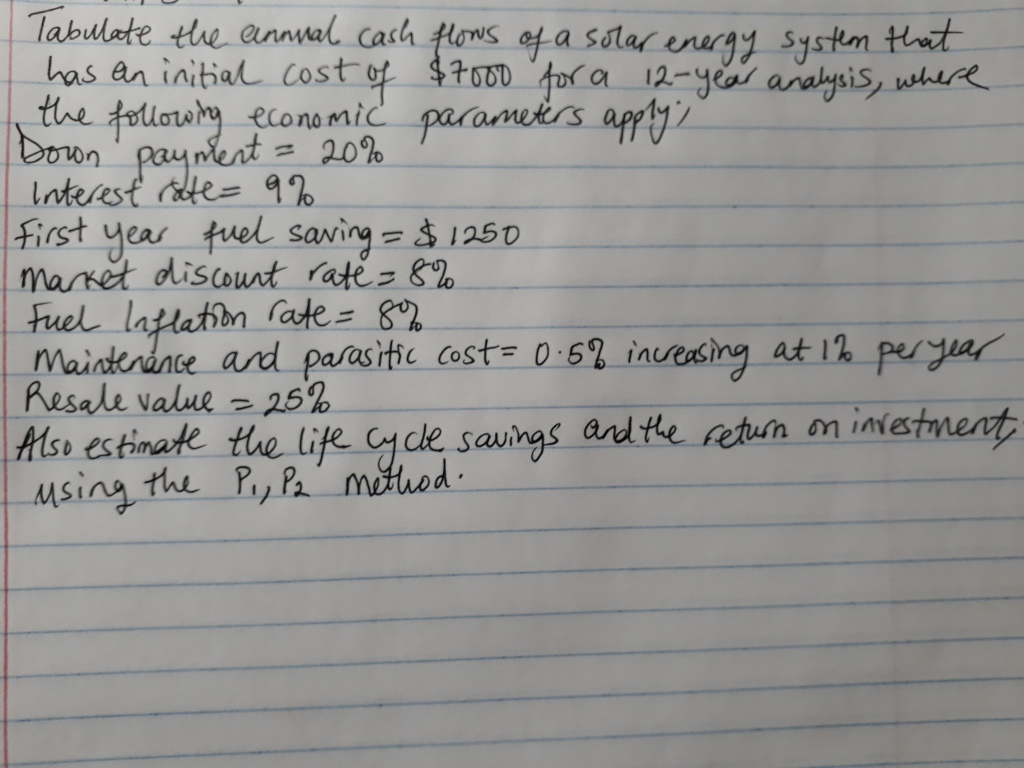 Tabulate the annual cash flows of a solar energy system that
has an initial cost of $7000 for a 12-year analysis, where
the following economic parameters apply;
Down payment = 20%
Interest rate = 9%
First year fuel saving = $1250
Market discount rate = 8%
Fuel Inflation rate = 8%
Maintenance and parasitic cost = 0.5% increasing at 1% per year
Resale value = 25%
Also estimate the life cycle savings and the return on investment,
using the P1, P2 method.